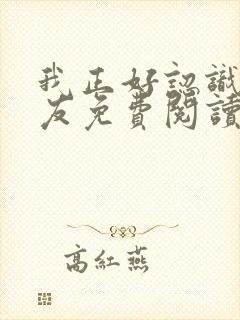 我正好認識
友免費閱讀
高紅燕